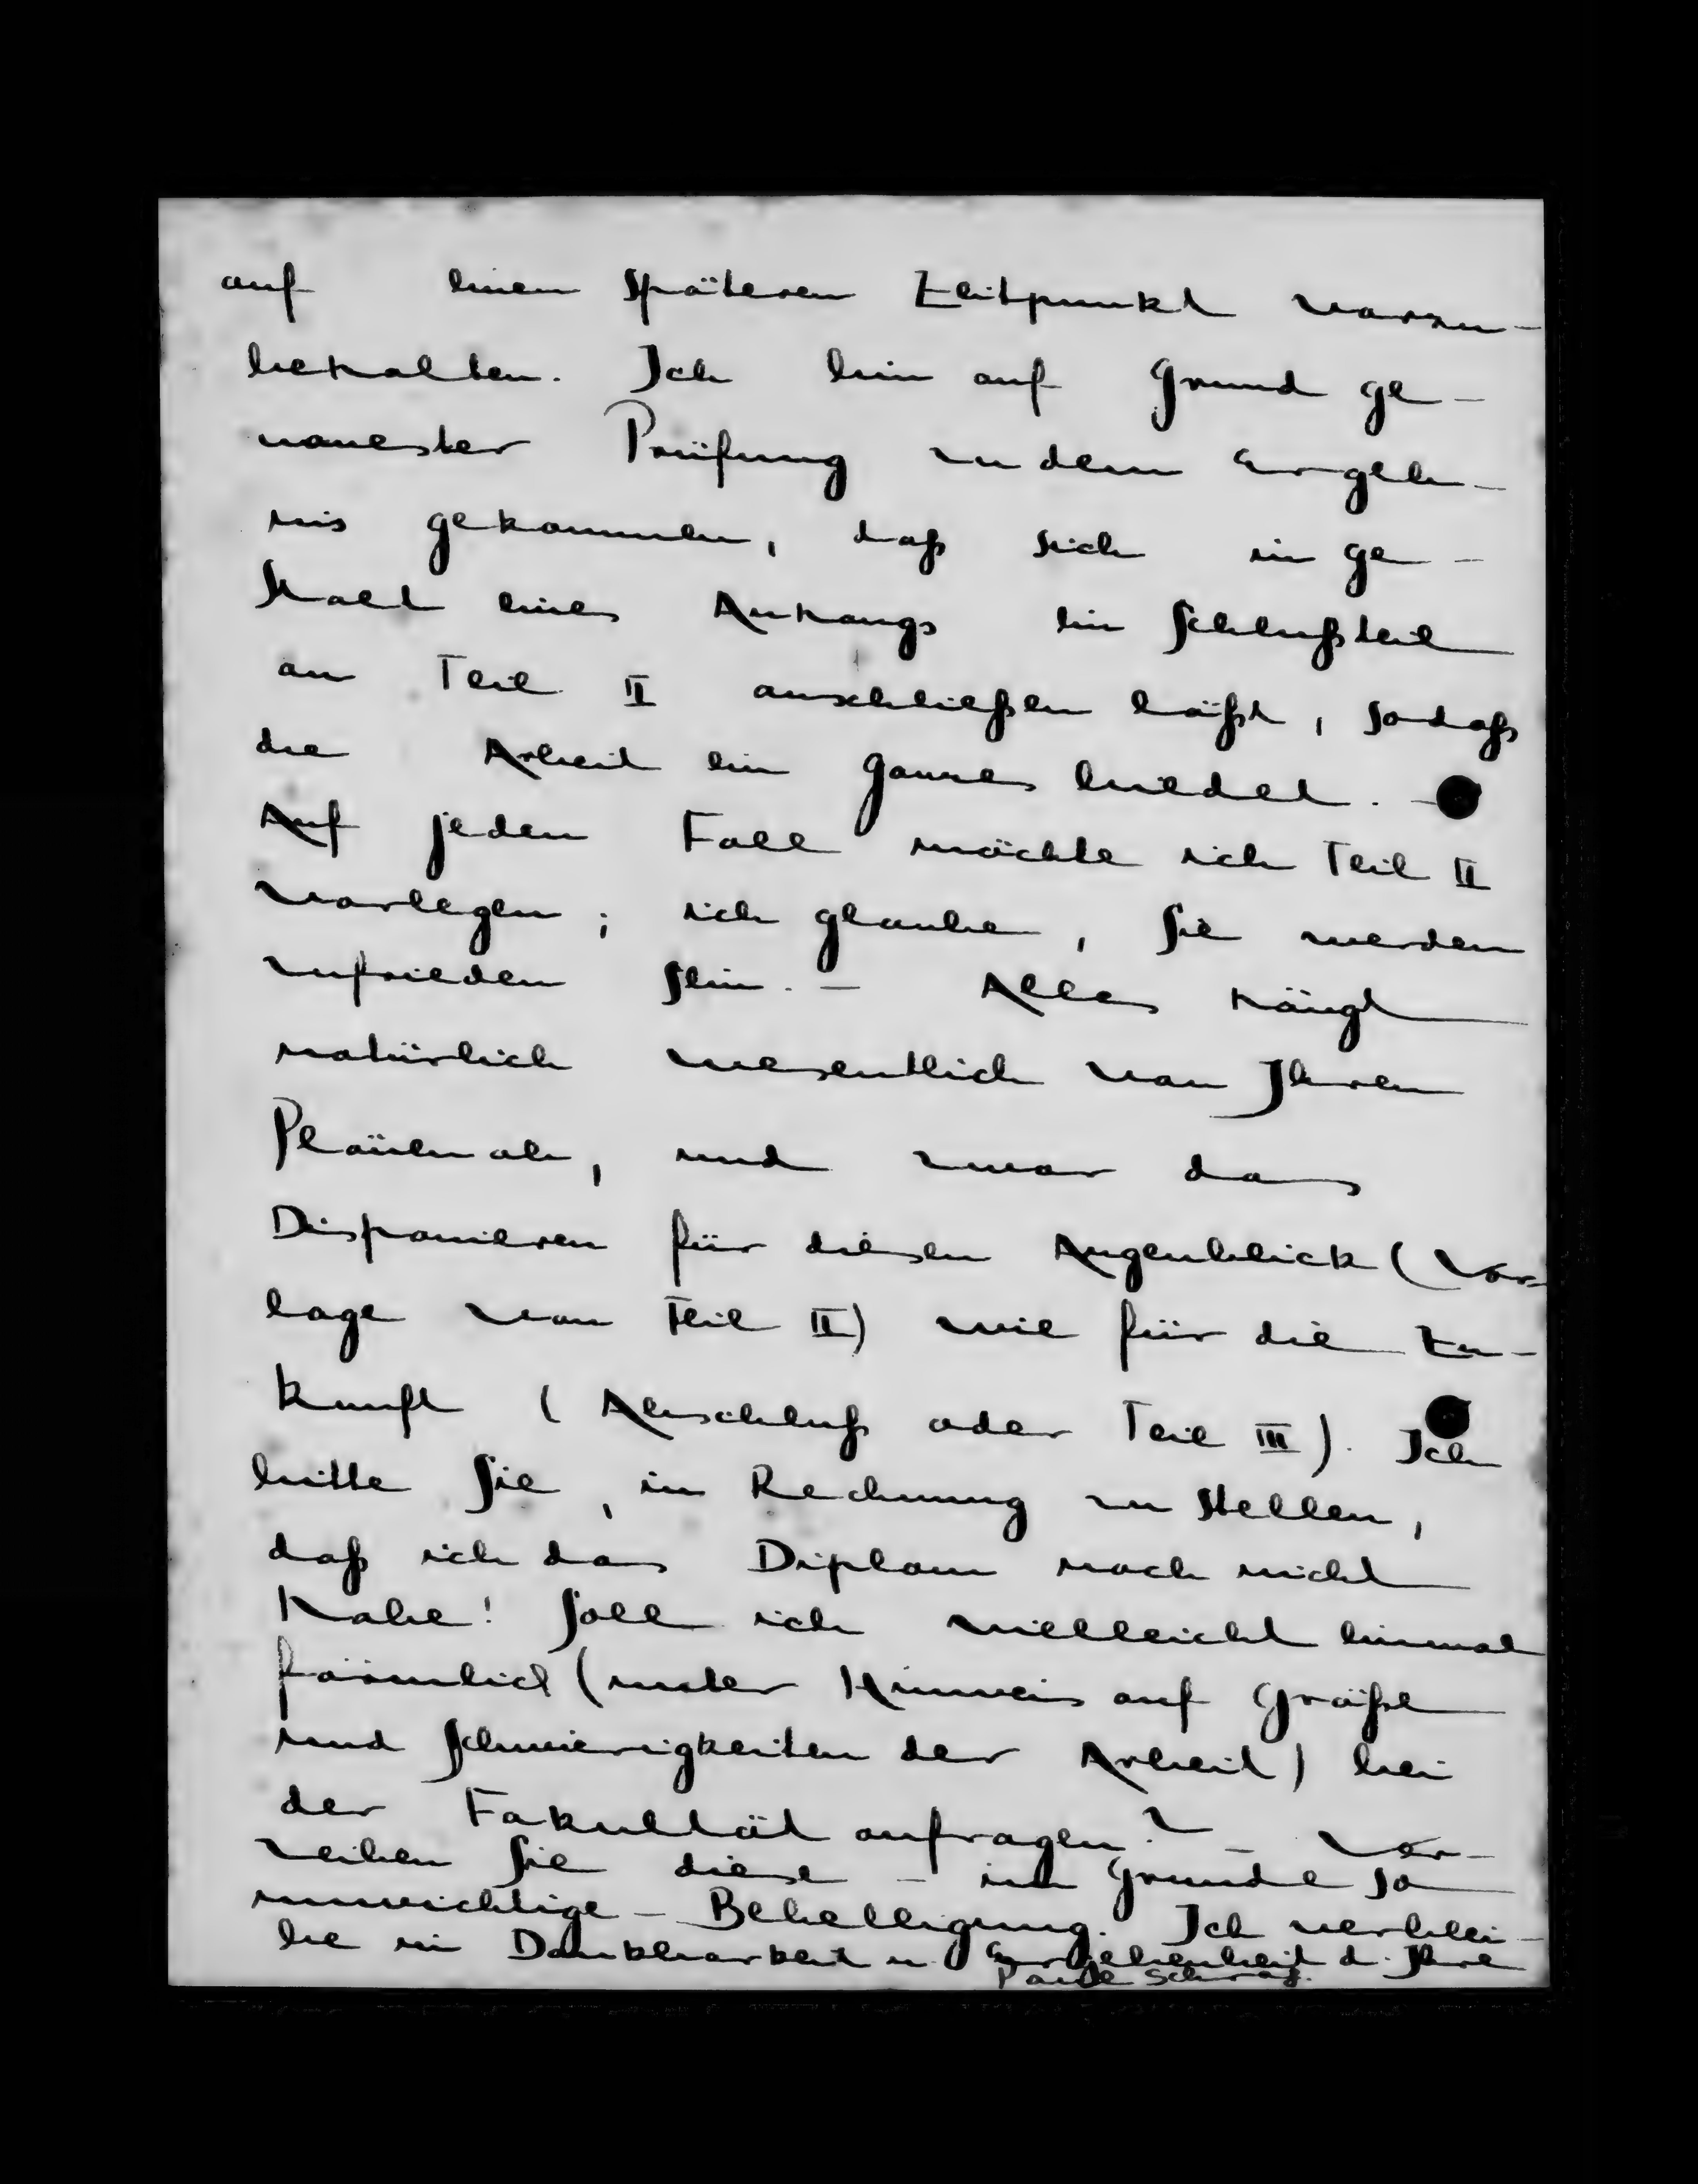 auf einen späteren Zeitpunkt vorzu-
behalten. Ich bin auf Grund ge-
nauester Prüfung zu dem Ergeb-
nis gekommen, daß sich in Ge-
stalt eines Anhangs ein Schlußteil
an Teil II anschließen läßt, sodaß
die Arbeit ein Ganzes bildet. -
Auf jeden Fall möchte ich Teil II
vorlegen; ich glaube, Sie werden
zufrieden sein. - Alles hängt
natürlich wesentlich von Ihren
Plänen ab, und zwar das
Disponieren für diesen Augenblick (Vor-
lage von Teil II) wie für die Zu-
kunft (Abschluß oder Teil III). Ich
bitte Sie, in Rechnung zu stellen,
daß ich das Diplom noch nicht
habe! Soll ich vielleicht einmal
förmlich (unter Hinweis auf Größe
und Schwierigkeiten der Arbeit) bei
der Fakultät anfragen? - Ver-
zeihen Sie diese - im Grunde so
unwichtige - Behelligung. Ich verblei-
be in Dankbarkeit u. Ergebenheit d. Ihre